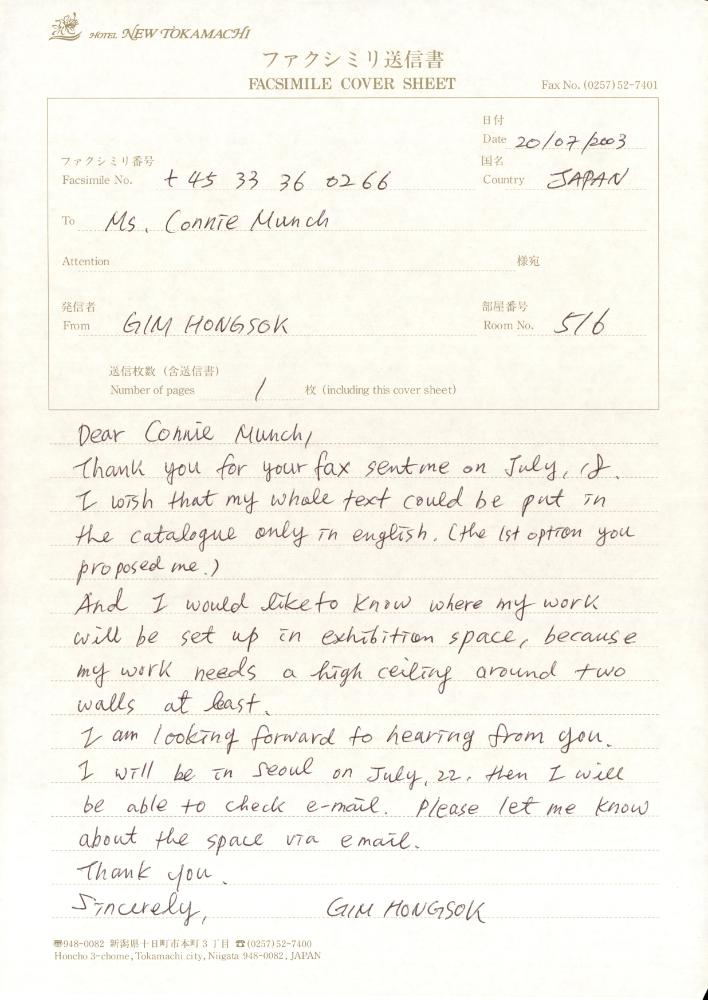 HOTEL NEW TOKAMACHI
ファクシミリ送信書
FACSIMILE COVER SHEET
Fax No. (0257)52-7401
日付
Date 20/07/2003
ファクシミリ番号
Facsimile No. +45 33 36 0266
国名
Country JAPAN
To Ms. Connie Munch
Attention 様宛
発信者
From GIM HONGSOK
部屋番号
Room No. 516
送信枚数（含送信書）
Number of pages 1 枚 (including this cover sheet)
Dear Connie Munch,
Thank you for your fax sent me on July, 18.
I wish that my whole text could be put in
the catalogue only in english. (the 1st option you
proposed me.)
And I would like to know where my work
will be set up in exhibition space, because
my work needs a high ceiling around two
walls at least.
I am looking forward to hearing from you.
I will be in Seoul on July, 22. then I will
be able to check e-mail. Please let me know
about the space via email.
Thank you.
Sincerely, GIM HONGSOK
〠948-0082 新潟県十日町市本町3丁目 ☎(0257)52-7400
Honcho 3-chome, Tokamachi city, Niigata 948-0082, JAPAN